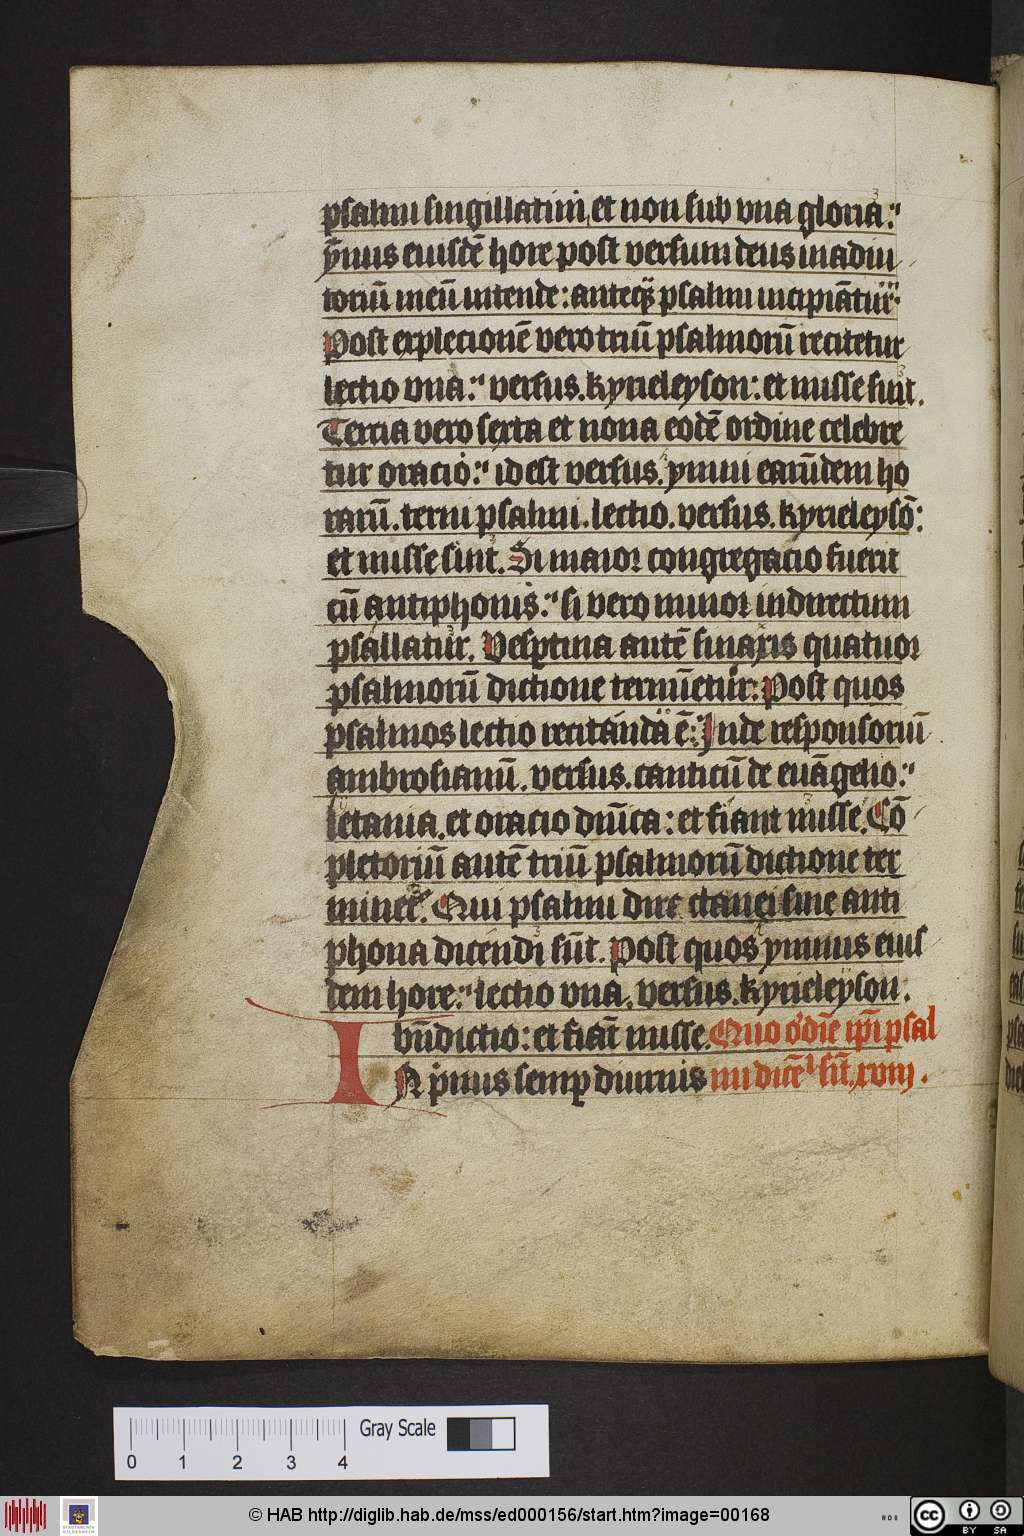 psalmi singillatim, et non sub vna gloria:"
ẏmus eiusdē hore post versum deus in adiu
toriū meū intende: anteq̄ psalmi incipiātur·
Post explecionē vero triū psalmorū recitetur
lectio vna:" versus. kyrieleyson: et misse sint.
Tercia vero sexta et nona eodē ordine celebre
tur oracio:" id est versus. ymni earūdem ho
rarū. terni psalmi. lectio. versus. kyrieleysō:
et misse sint. Si maior congregacio fuerit
cū antiphonis:" si vero minor indirectum
psallatur. Vesꝑtina autē sinaxis quatuor
psalmorū dictione termīetur: Post quos
psalmos lectio recitanda ē: Inde responsoriū
ambrosianū. versus. canticū de euāgelio:"
letania. et oracio dn̄ica: et fiant misse. Cō
pletoriū autē triū psalmorū dictione ter
minet᷑. Qui psalmi dire ctanei sine anti
phona dicendi sūt. Post quos ymnus eius
dem hore:" lectio vna. versus. kyrieleyson.
bn̄dictio: et fiāt misse. Quo o'dīe ip̄i psal
IN p̄mis semꝑ diurnis mi dicēl sūt. xviij.
Gray Scale
0 1 2 3 4
© HAB http://diglib.hab.de/mss/ed000156/start.htm?image=00168
CC BY SA